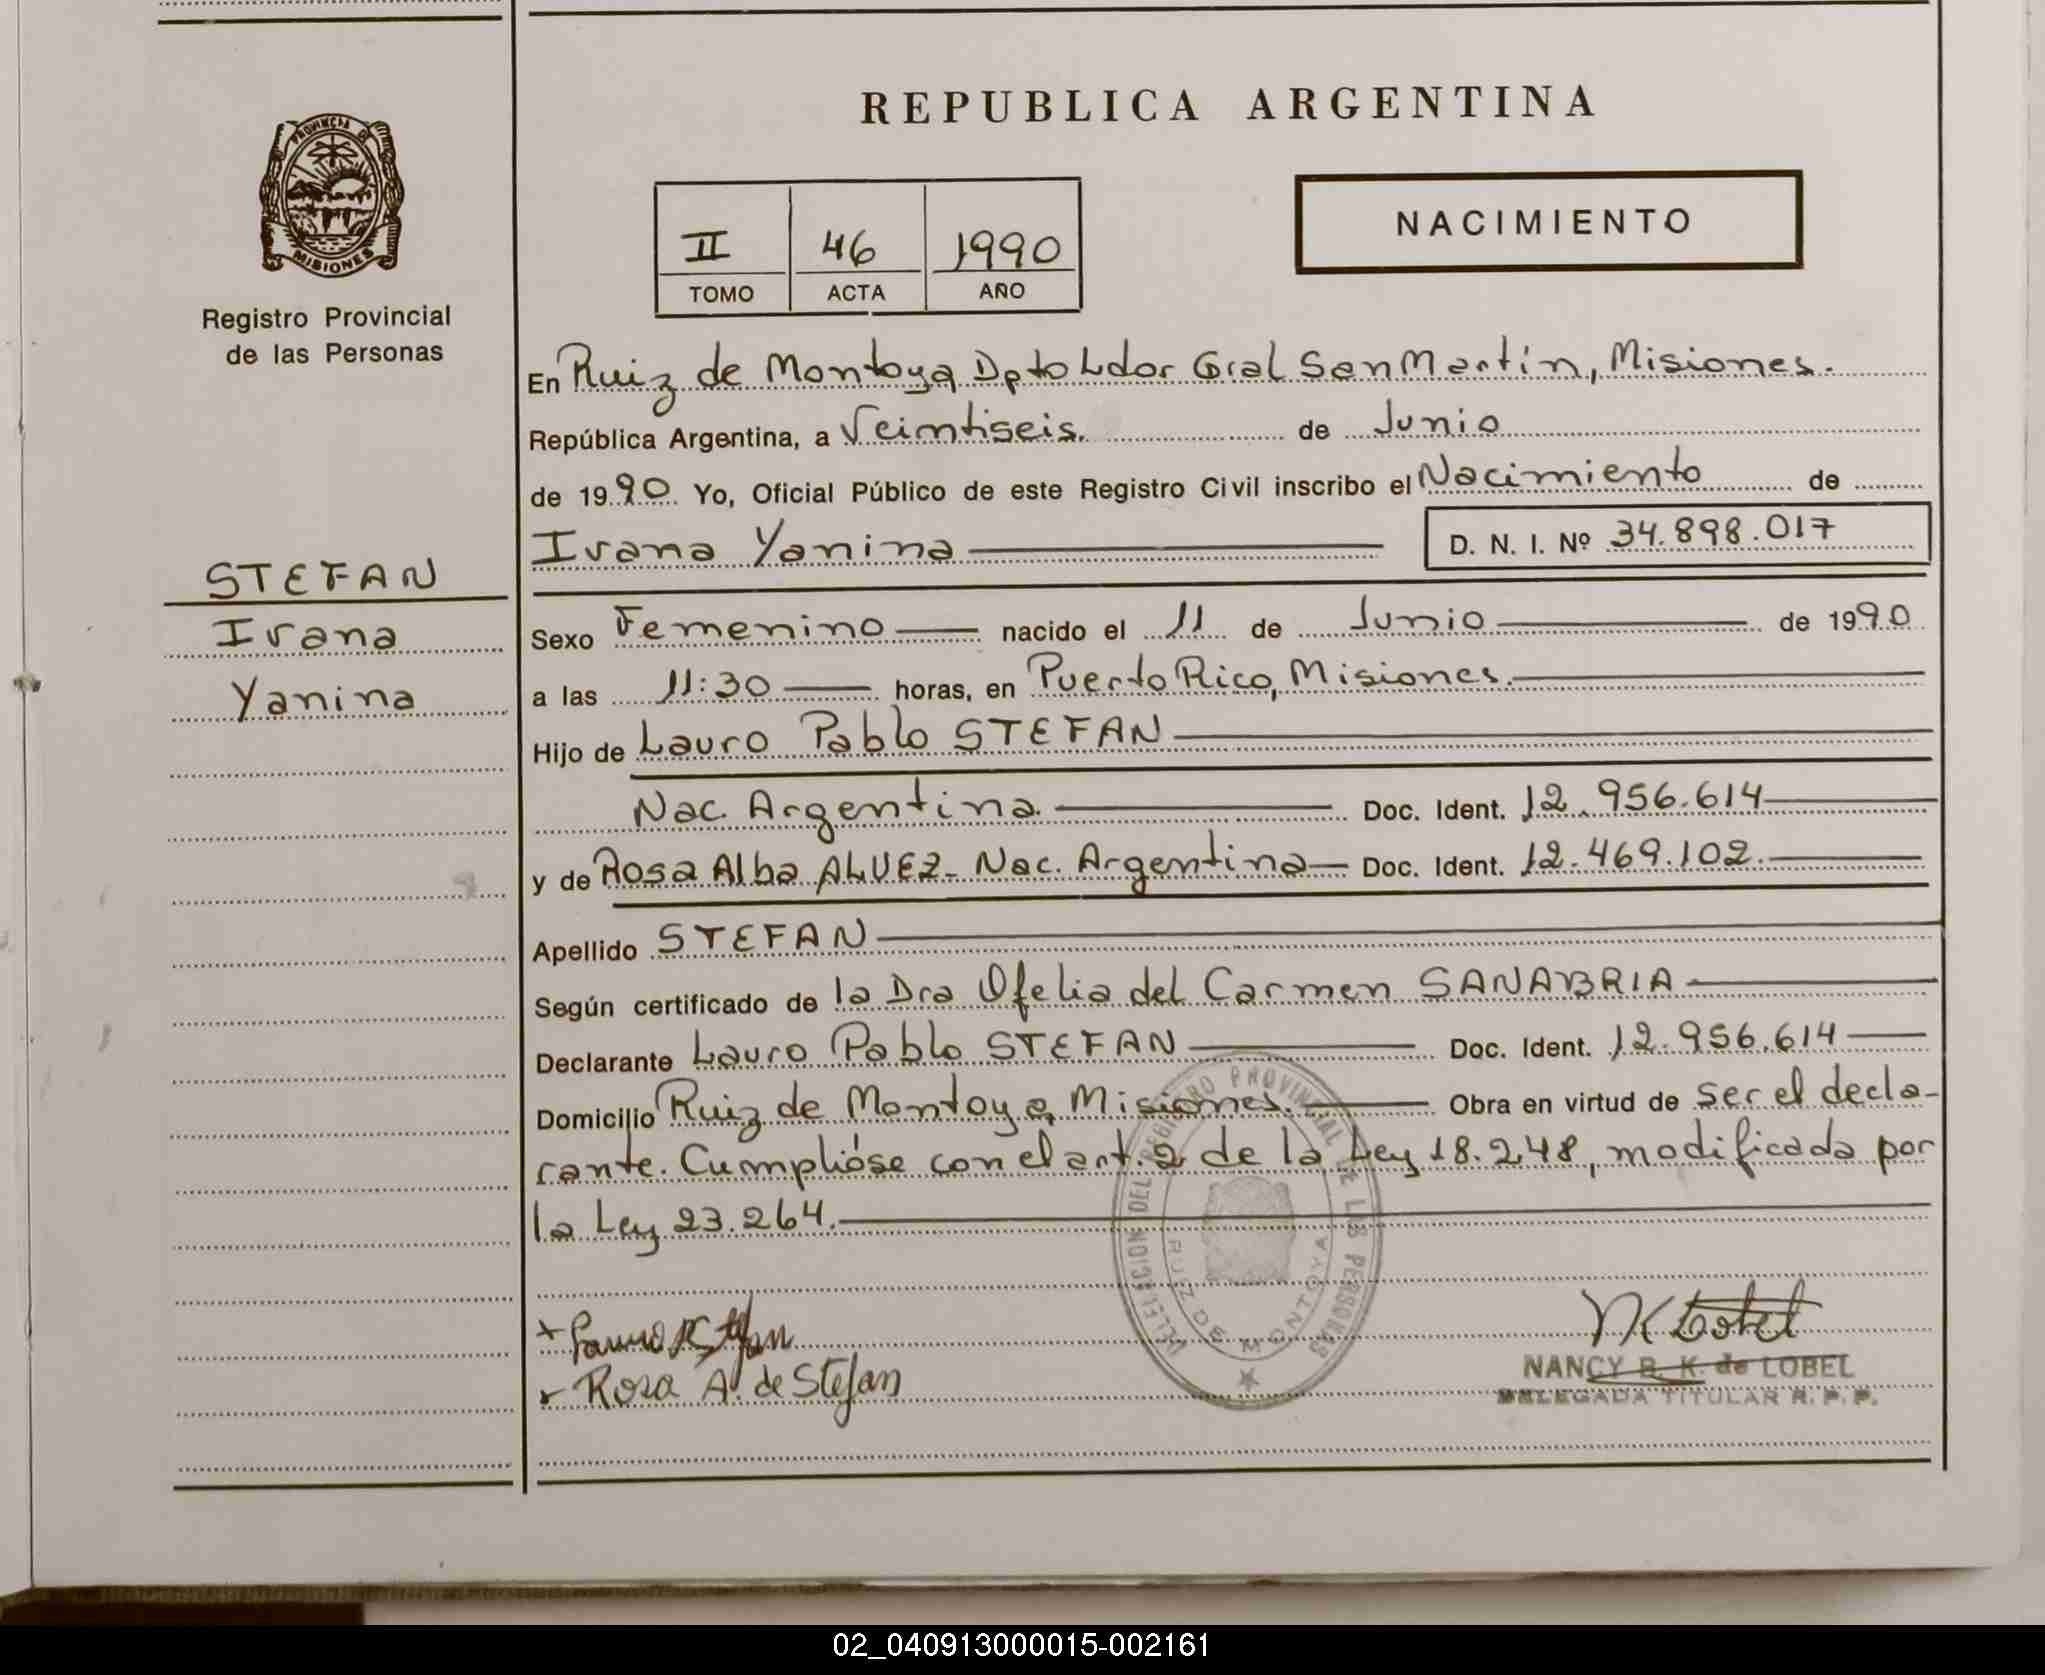 REPUBLICA ARGENTINA
PROVINCIA DE
MISIONES
Registro Provincial
de las Personas
II 46 1990
TOMO ACTA AÑO
NACIMIENTO
En Ruiz de Montoya, Dpto Ldor Gral San Martín, Misiones.
República Argentina, a Veintiseis. de Junio
de 1990 Yo, Oficial Público de este Registro Civil inscribo el Nacimiento de
Ivana Yanina D. N. I. Nº 34.898.017
STEFAN
Ivana
Yanina
Sexo Femenino nacido el 11 de Junio de 1990
a las 11:30 horas, en Puerto Rico, Misiones.
Hijo de Lauro Pablo STEFAN
Nac. Argentina. Doc. Ident. 12.956.614
y de Rosa Alba ALVEZ- Nac. Argentina Doc. Ident. 12.469.102.
Apellido STEFAN
Según certificado de la Dra Ofelia del Carmen SANABRIA
Declarante Lauro Pablo STEFAN Doc. Ident. 12.956.614
Domicilio Ruiz de Montoya, Misiones. Obra en virtud de ser el decla-
rante. Cumplióse con el art. 2 de la Ley 18.248, modificada por
la Ley 23.264.
DELEGACION DEL REGISTRO PROVINCIAL DE LAS PERSONAS
RUIZ DE MONTOYA
Rosa A. de Stefan
NANCY B. K. de LOBEL
DELEGADA TITULAR R. P. P.
02_040913000015-002161